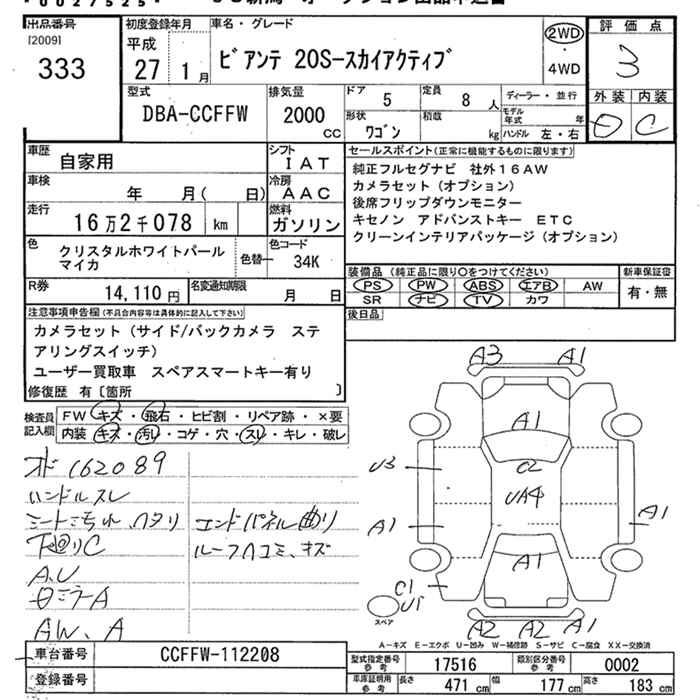 出品番号
[2009]
333
初度登録年月
平成
27 1月
車名・グレード
ビアンテ 20S-スカイアクティブ
2WD
4WD
評価点
3
外装 内装
C
型式
DBA-CCFFW
排気量
2000 cc
ドア 5
定員 8 人
形状 ワゴン
積載 kg
ディーラー・並行
モデル年式 年
ハンドル 左・右
車歴 自家用
シフト IAT
車検 年 月( 日)
冷房 AAC
走行 16万2千078 km
燃料 ガソリン
色 クリスタルホワイトパールマイカ
色替
色コード 34K
R券 14,110円
名変通知期限 月 日
セールスポイント(正常に機能するものに限ります)
純正フルセグナビ 社外16AW
カメラセット(オプション)
後席フリップダウンモニター
キセノン アドバンストキー ETC
クリーンインテリアパッケージ(オプション)
装備品(純正品に限り○をつけてください)
PS PW ABS エアB AW
SR ナビ TV カワ
新車保証書
有・無
後日品
注意事項申告欄(不具合内容等は具体的に記入して下さい)
カメラセット(サイド/バックカメラ ステ
アリングスイッチ)
ユーザー買取車 スペアスマートキー有り
修復歴 有〔箇所 〕
検査員記入欄
FW キズ・飛石・ヒビ割・リペア跡・×要
内装 キズ・汚レ・コゲ・穴・スレ・キレ・破レ
162089
ハンドルスレ
シート汚れ、ヘタリ
下廻りC
A.U
ミラーA
AW、A
エンドパネル曲り
ルーフヘコミ、キズ
A3 A1
A1
C2
U3
UA4
A1
A1
A1
C1
U1
スペア
A2 A2 A1
A-キズ E-エクボ U-凹み W-補修跡 S-サビ C-腐食 XX-交換済
車台番号 CCFFW-112208
登録番号
型式指定番号参考 17516
類別区分番号参考 0002
車庫証明用参考
長さ 471 cm
幅 177 cm
高さ 183 cm